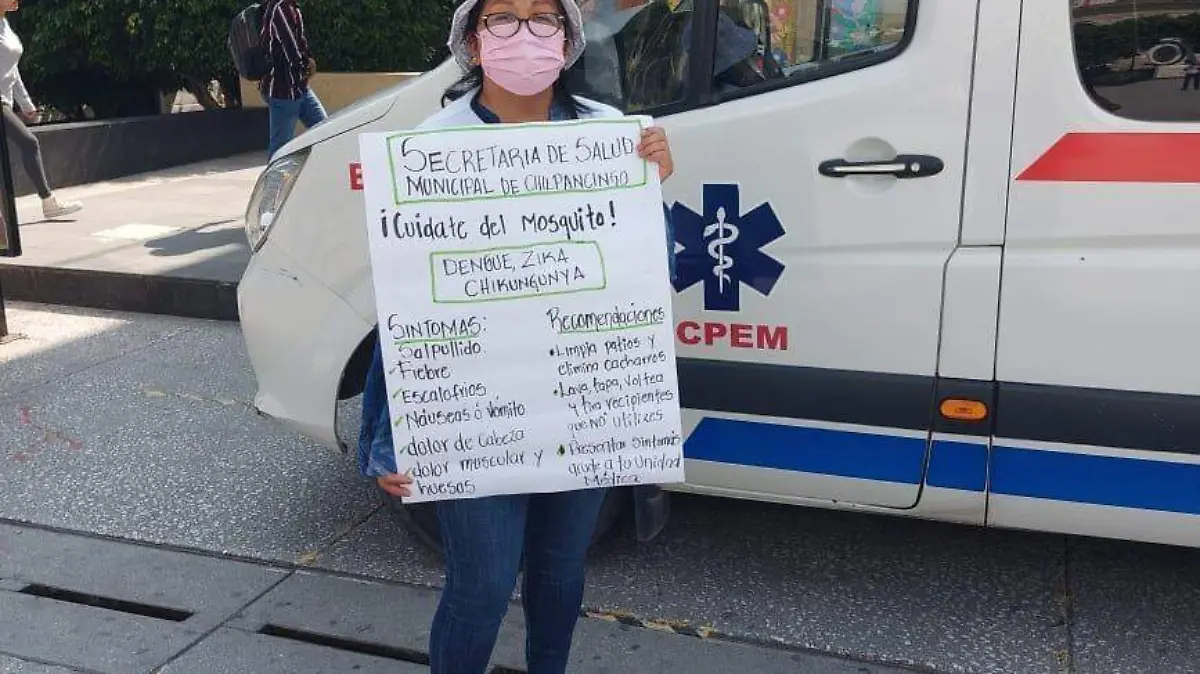 SECRETARIA DE SALUD
MUNICIPAL DE CHILPANCINGO
¡Cuidate del Mosquito!
DENGUE, ZIKA
CHIKUNGUNYA
SINTOMAS:
Salpullido
Fiebre
Escalofrios
Náuseas ó Vómito
dolor de Cabeza
dolor muscular y
huesos
Recomendaciones
•Limpia patios y
elimina cacharros
•Lava, tapa, voltea
y tira recipientes
que NO utilizes
•Presentar Sintomas
acude a tu Unidad
Médica
CPEM